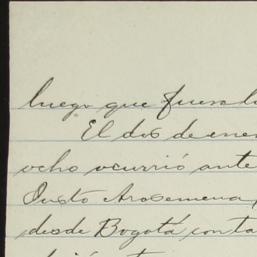 luego que fuera l
El dos de ener
ocho ocurrió ante
Justo Arosemena,
desde Bogotá conta